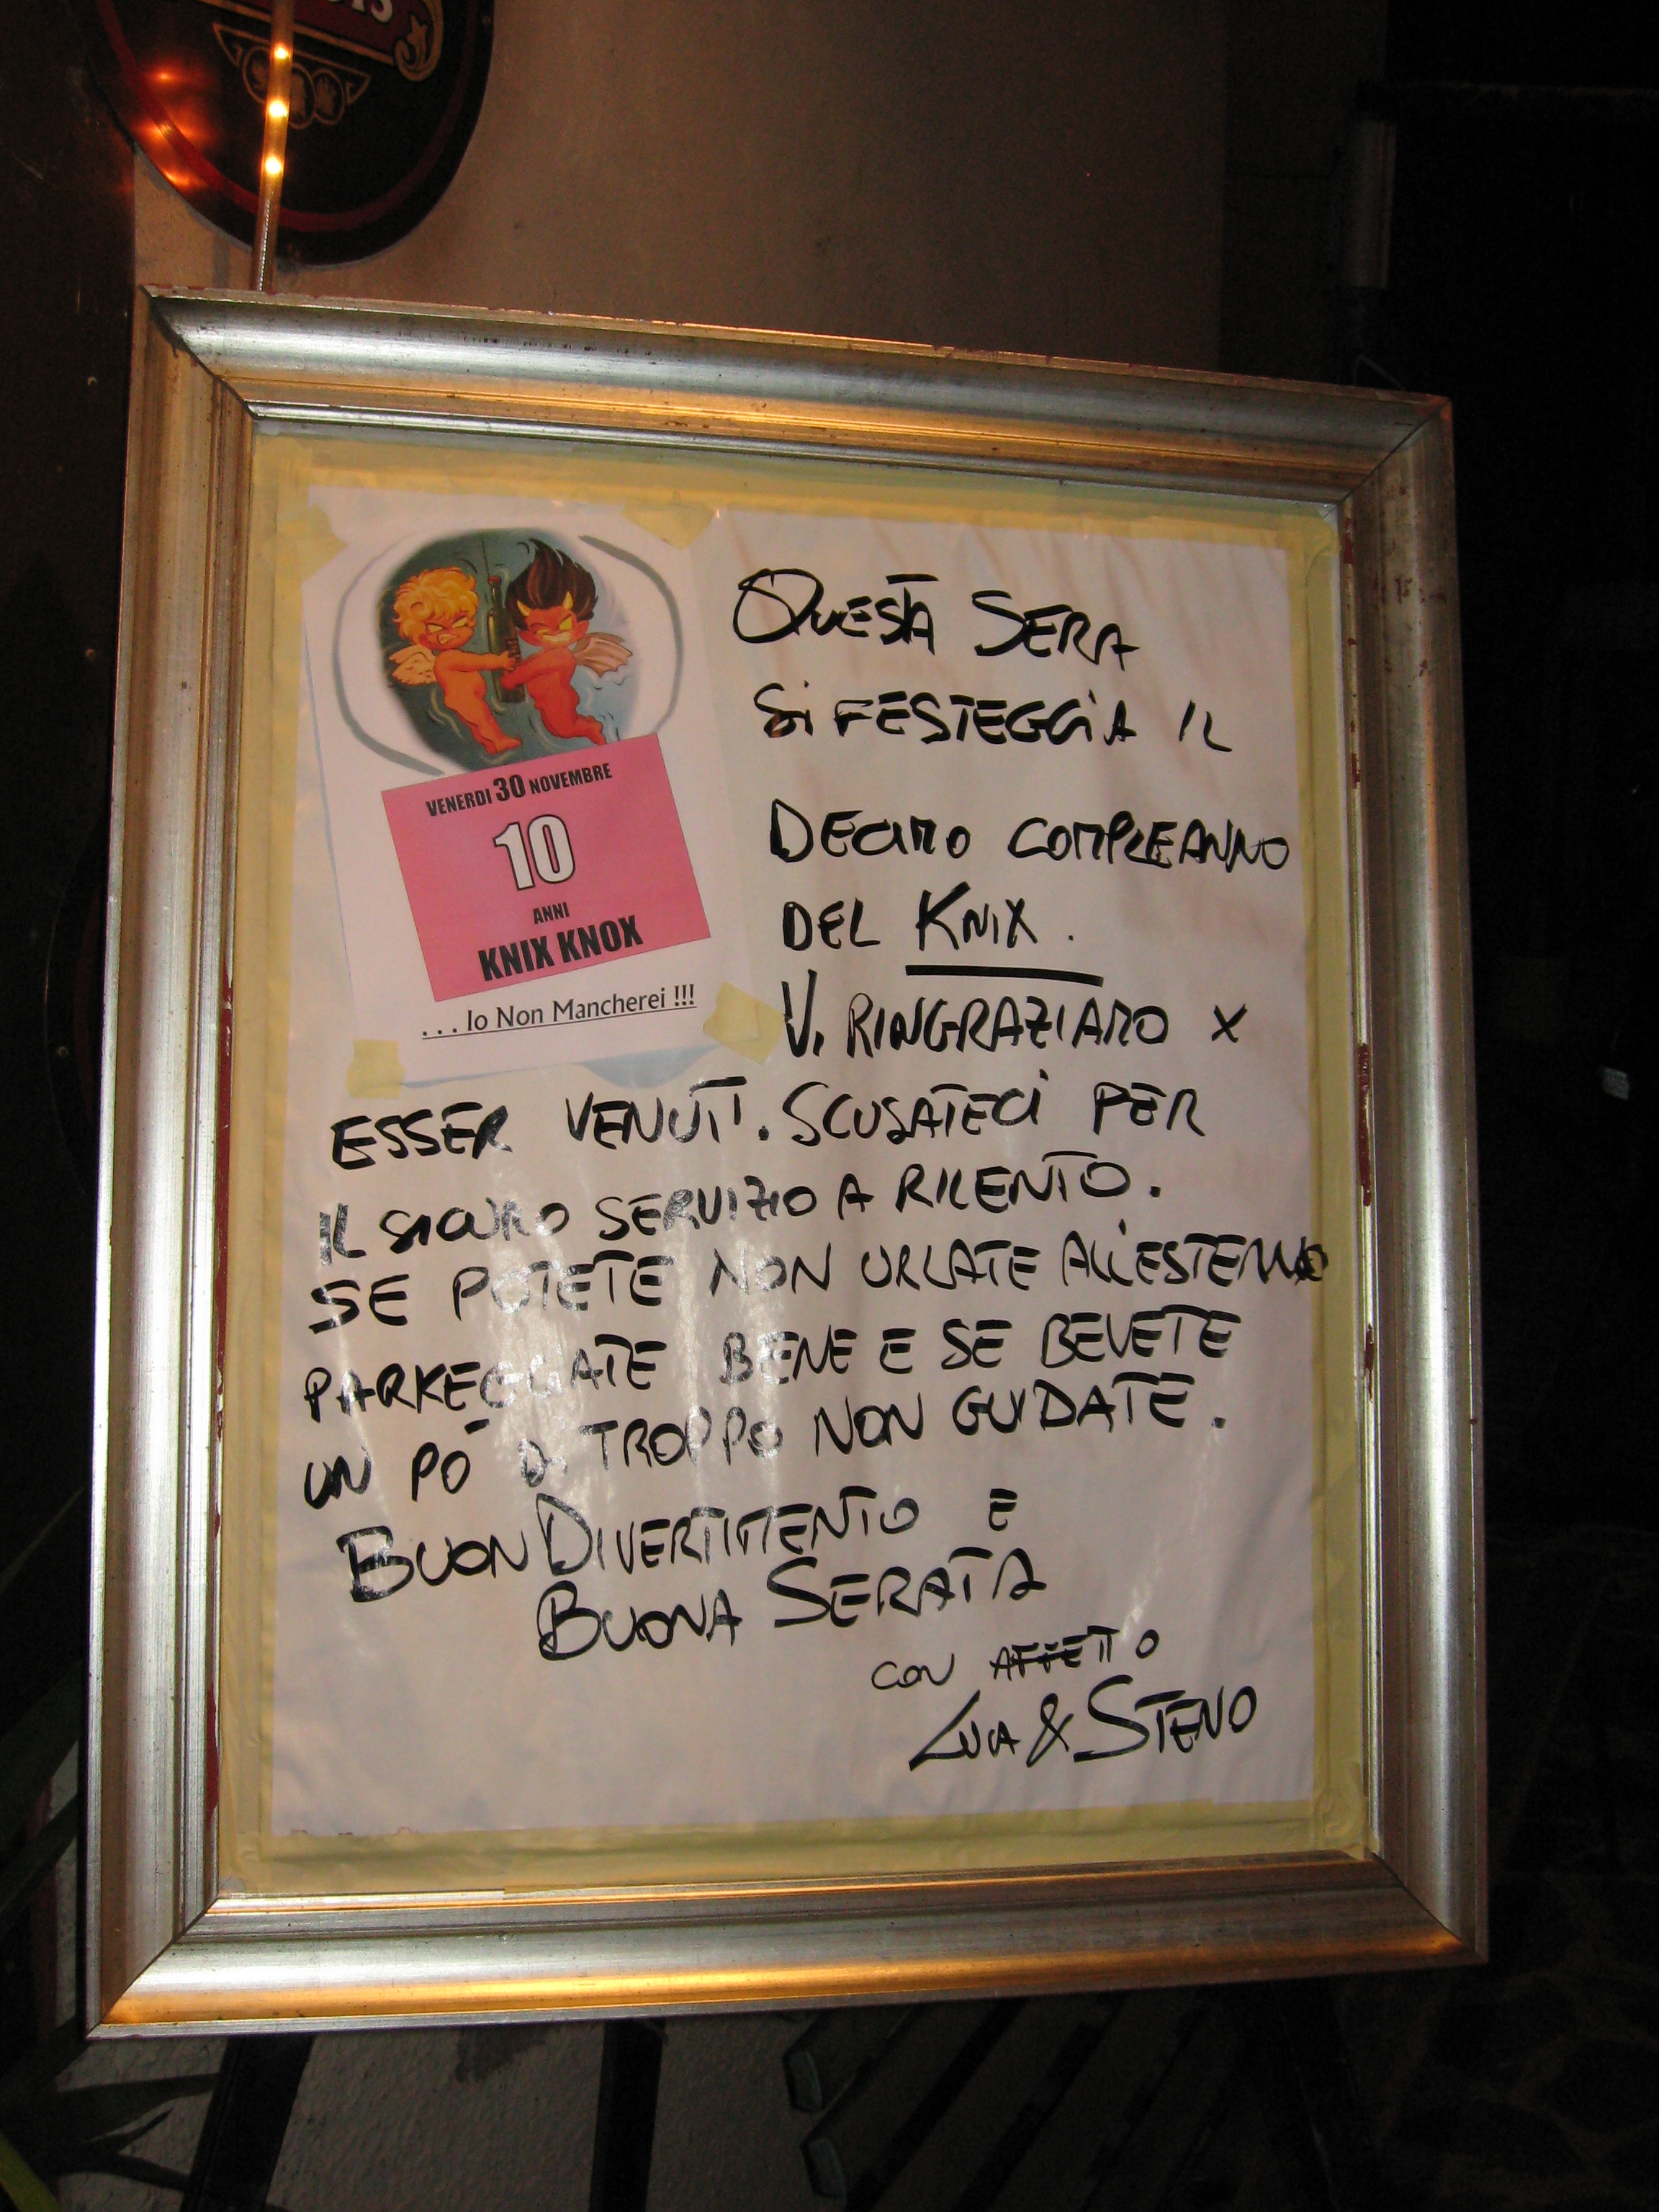 VENERDI 30 NOVEMBRE
10
ANNI
KNIX KNOX
. . . Io Non Mancherei !!!
QUESTA SERA
Si FESTEGGiA IL
DECIMO COMPLEANNO
DEL KNIX.
Vi RINGRAZIAMO X
ESSER VENUTI. SCUSATECi PER
IL SICURO SERVIZIO A RILENTO.
SE POTETE NON URLATE ALL'ESTERNO
PARKEGGIATE BENE E SE BEVETE
UN PO' Di TROPPO NON GUIDATE.
BUON DIVERTIMENTO E
BUONA SERATA
CON AFFETTO
LUCA & STENO